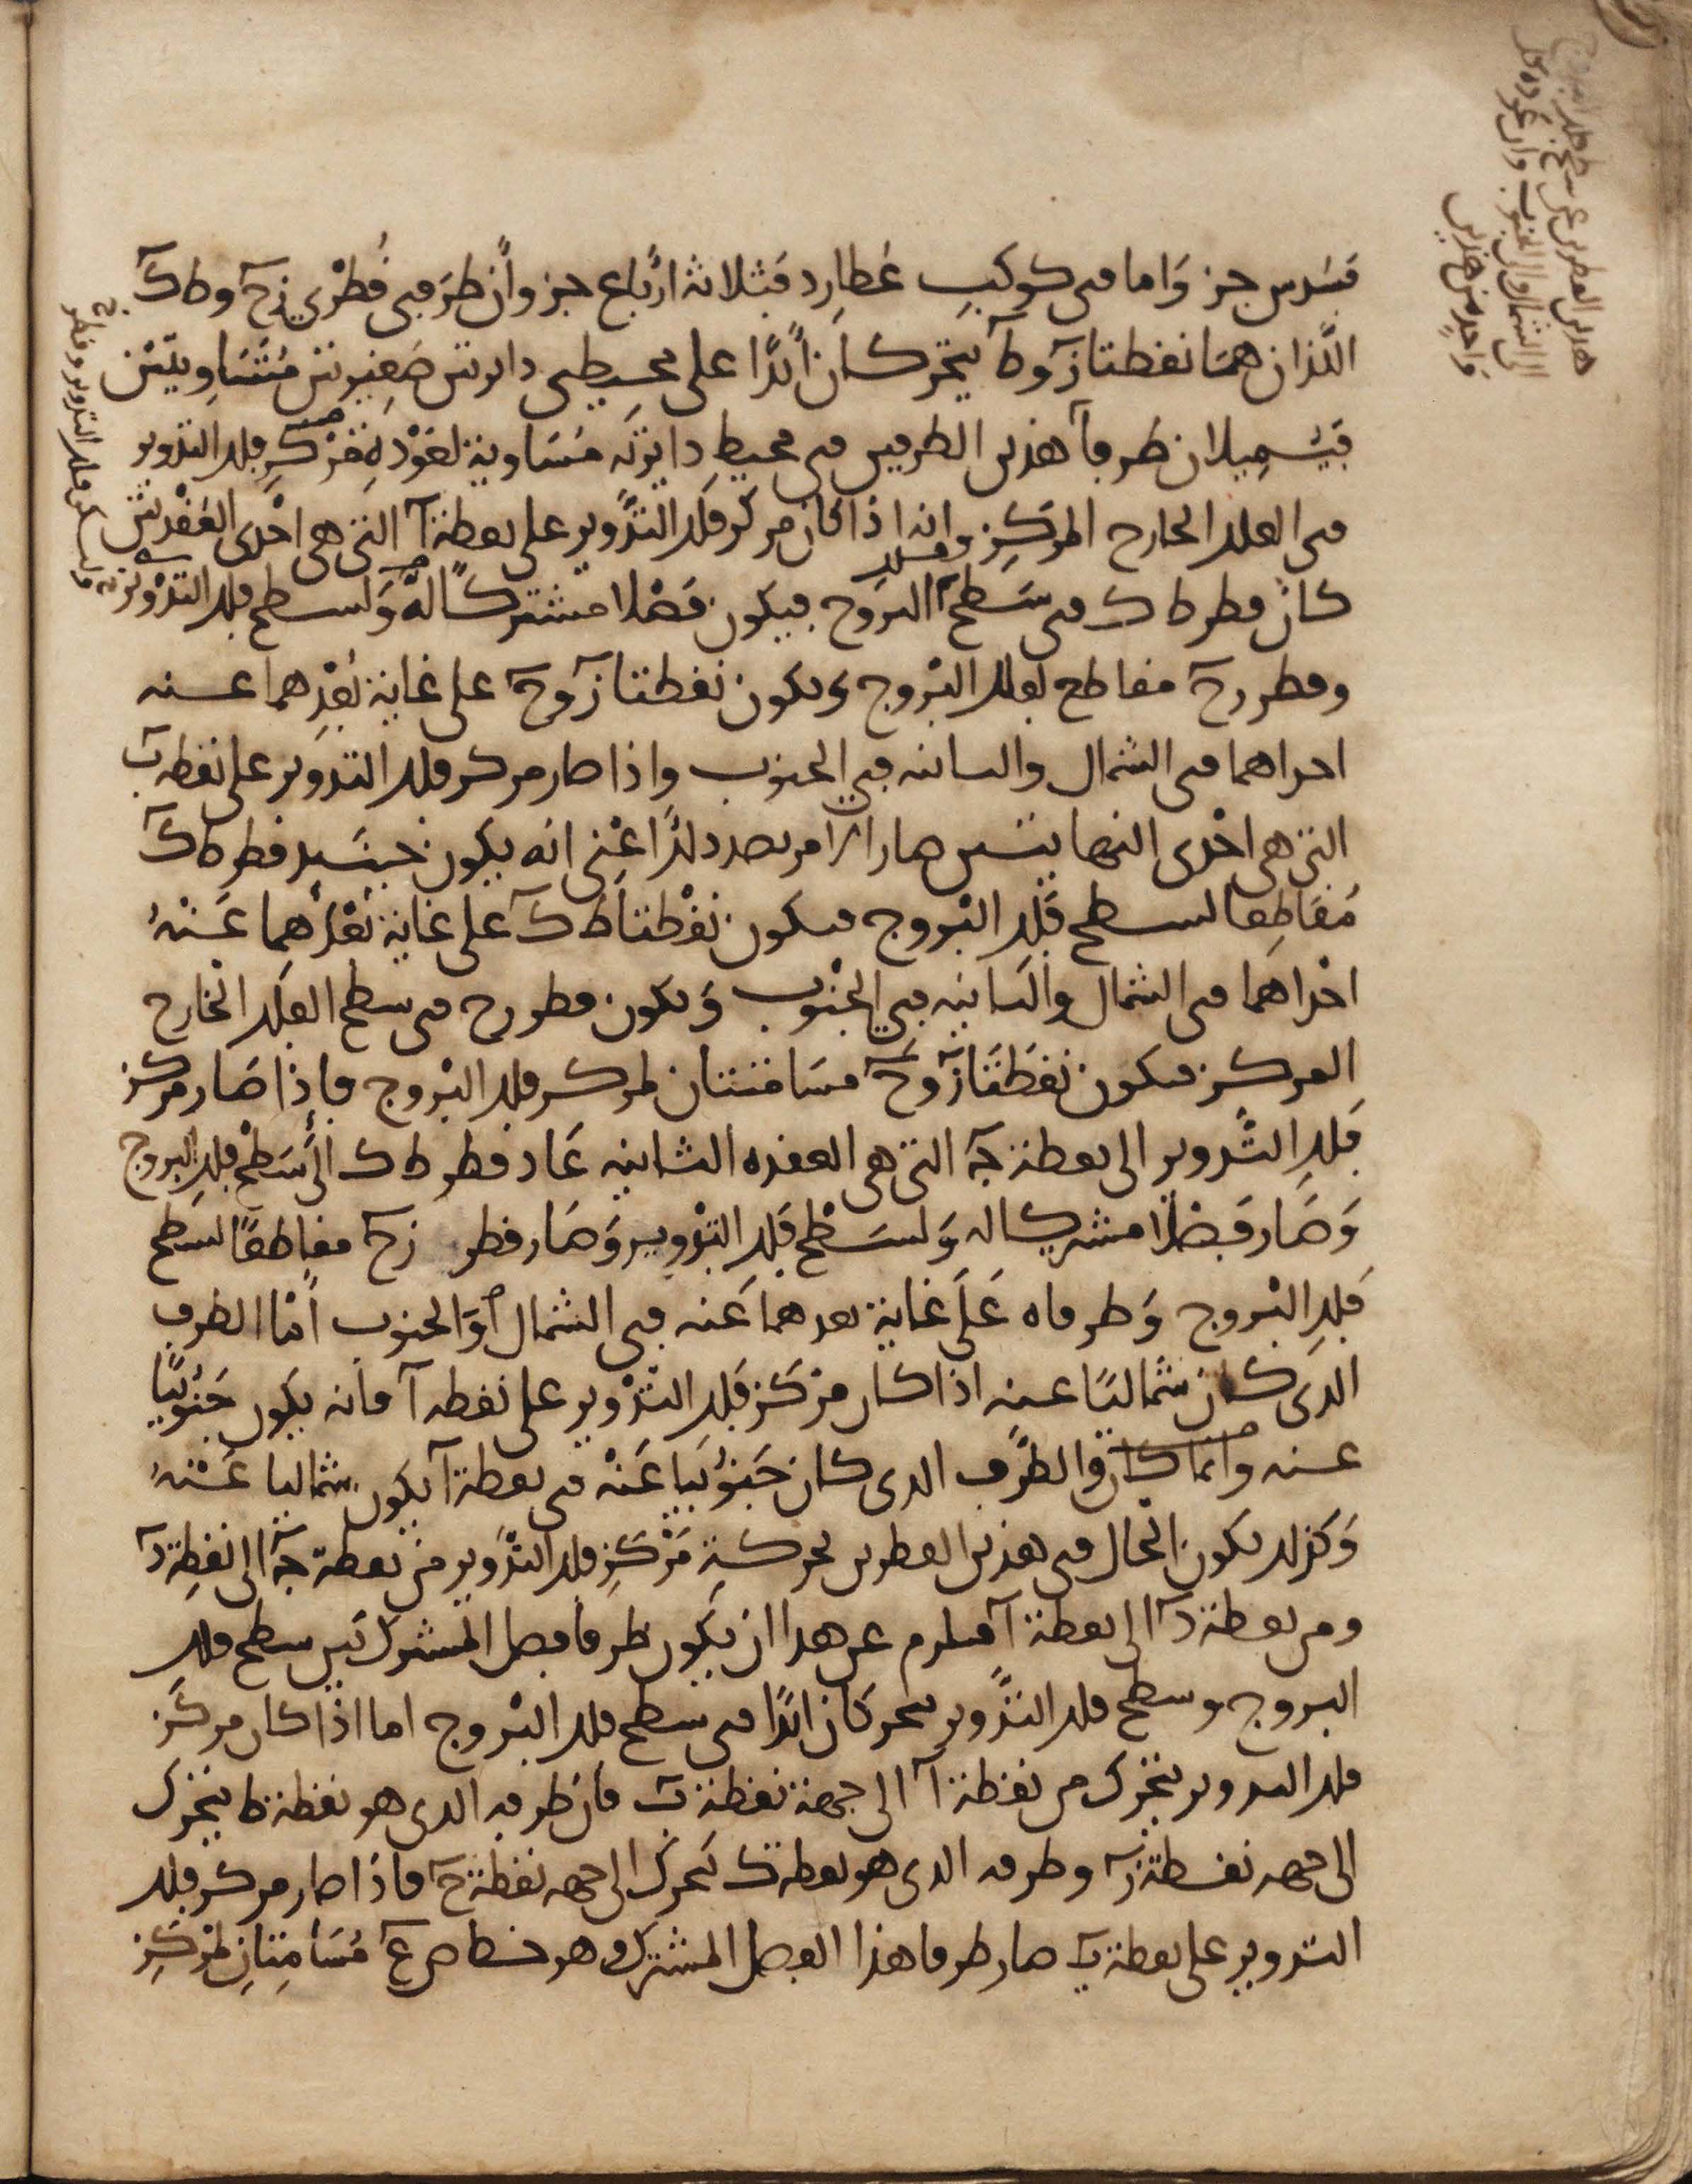 فبسدس جز واما في كوكب عطارد فبثلاثة ارباع جز وان طرفي قطري زح وطك
اللذان هما نقطتا ز وط يتحركان ابدا على محيطي دايرتين صغيرتين متساويتين
فيميلان طرفا هذين الطرفين في محيط دايرته مساوية لعودة مركز فلك التدوير
في الفلك الخارج المركز وانه اذا كان مركز فلك التدوير على نقطة آ التي هي احدى العقدتين
كان قطر ط ك في سطح فلك البروج فيكون فصلا مشتركا له ولسطح فلك التدوير
وقطر زح مقاطع لفلك البروج ويكون نقطتا ز وح على غاية بعدهما عنه
احداهما في الشمال والثانية في الجنوب واذا صار مركز فلك التدوير على نقطة ب
التي هي احدى النهايتين صار الامر بضد ذلك اعني انه يكون حينئذ قطر ط ك
مقاطعا لسطح فلك البروج فيكون نقطتا ط ك على غاية بعدهما عنه
احداهما في الشمال والثانية في الجنوب ويكون قطر زح في سطح الفلك الخارج
المركز فيكون نقطتا ز وح مسامتتان لمركز فلك البروج فاذا صار مركز
فلك التدوير الى نقطة جـ التي هي العقدة الثانية عاد قطر ط ك الى سطح فلك البروج
وصار فصلا مشتركا له ولسطح فلك التدوير وصار قطر زح مقاطعا لسطح
فلك البروج وطرفاه على غاية بعدهما عنه في الشمال او الجنوب اما الطرف
الذي كان شماليا عنه اذا كان مركز فلك التدوير على نقطة آ فانه يكون جنوبيا
عنه وانما كان والطرف الذي كان جنوبيا عنه في نقطة آ يكون شماليا عنه
وكذلك يكون الحال في هذين القطرين لحركة مركز فلك التدوير من نقطة جـ الى نقطة د
ومن نقطة د الى نقطة آ فيلزم عن هذا ان يكون طرفا فصل المشترك بين سطح فلك
البروج وسطح فلك التدوير يتحركان ابدا في سطح فلك البروج اما اذا كان مركز
فلك التدوير يتحرك من نقطة آ الى جهة نقطة ب فان طرفه الذي هو نقطة ط يتحرك
الى جهة نقطة ز وطرفه الذي هو نقطة ك يتحرك الى جهة نقطة ح فاذا صار مركز فلك
التدوير على نقطة ب صار طرفا هذا الفصل المشترك وهو خط ص ع مسامتتان لمركز
هذين القطرين عن سطح فلك البروج
الى الشمال والجنوب وان عودة كل
واحد من هذين